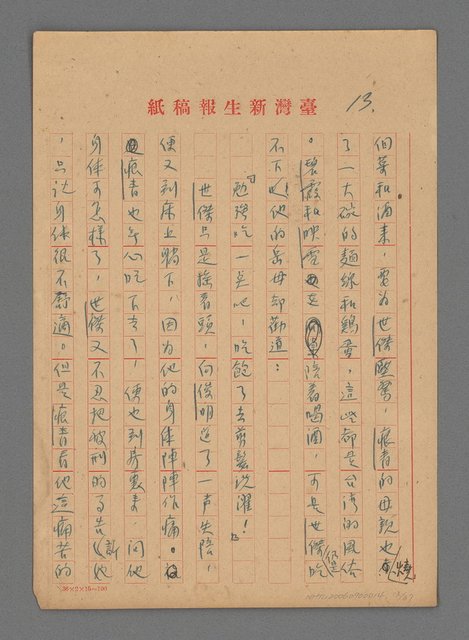 臺灣新生報稿紙
13.
個菜和酒來，要為世傑壓驚，痕青的母親也燒
了一大碗的麵線和鷄蛋，這些都是台灣的風俗
。碧霞和映雪也陪着喝酒，可是世傑仍是吃
不下，他的岳母却勸道：
「勉强吃一點吧！吃飽了去剪髮洗濯！」
世傑只是搖着頭，向俊明道了一聲失陪，
便又到床上躺下，因為他的身体陣陣作痛。
痕青也無心吃下去了，便也到房裏來，問他
身体可怎樣了，世傑又不忍把被刑的事告訴她
，只說身体很不舒適。但是痕青看他這痛苦的
36×2×15=100